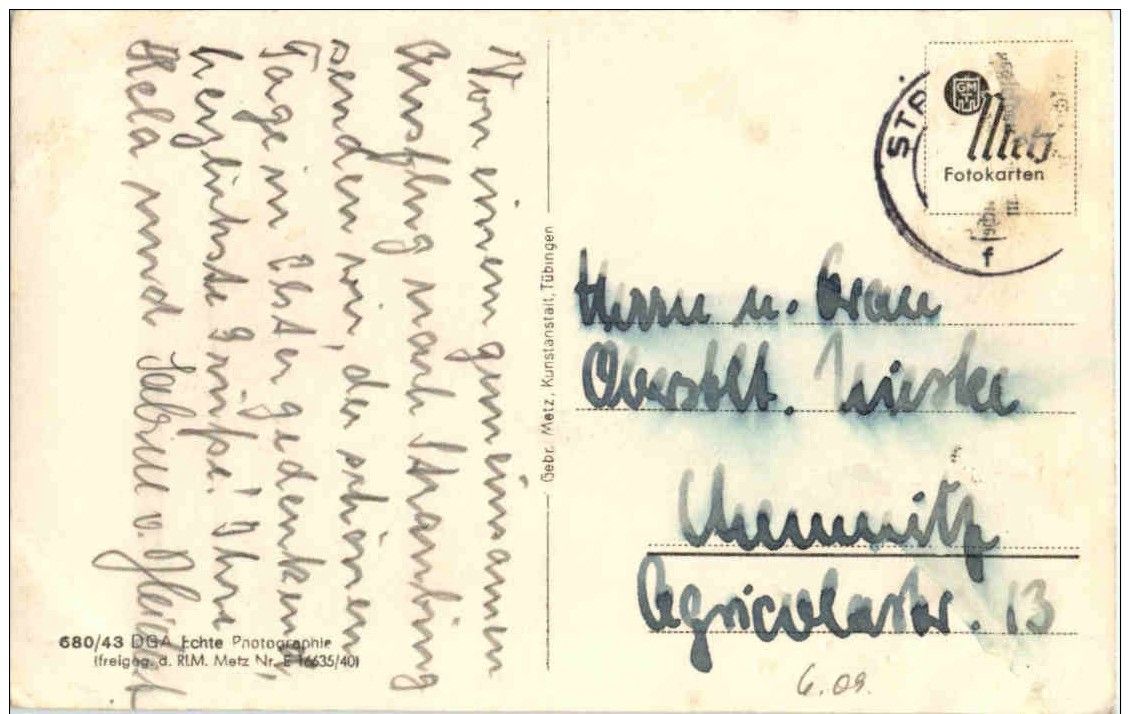 Von einem gemeinsamen
Ausflug nach Straubing
senden wir, der schönen
Tage in Eger gedenkend,
herzlichste Grüße! Ihre
Hela und Sabine v.
680/43 DGA Echte Photographie
(freigeg. d. RLM. Metz Nr. E 16635/40)
Gebr. Metz, Kunstanstalt, Tübingen
STR
f
GM
Metz
Fotokarten
Herrn u. Frau
Oberstlt. Lieske
Chemnitz
Agricolastr. 13
6.09.